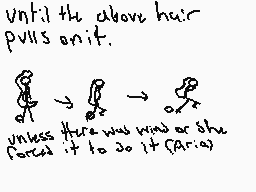 until the above hair
pulls on it.
unless there was wind or she
forced it to do it (Aria)